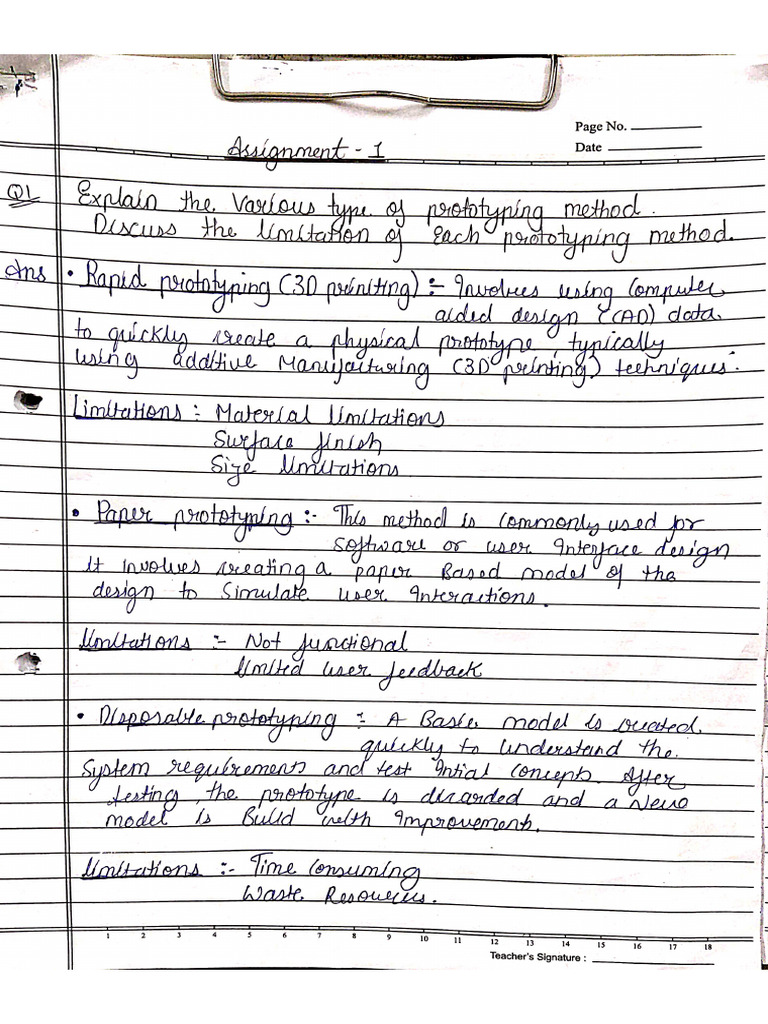 Page No.
Date
Assignment - 1
Q1 Explain the various type of prototyping method.
Discuss the limitation of each prototyping method.
Ans • Rapid prototyping (3D printing) :- Involves using computer
aided design (CAD) data
to quickly create a physical prototype, typically
using additive Manufacturing (3D printing) techniques.
Limitations :- Material limitations
Surface finish
Size limitations
• Paper prototyping :- This method is commonly used for
software or user Interface design
It involves creating a paper Based model of the
design to simulate user interactions.
limitations :- Not functional
limited user feedback
• Disposable prototyping :- A Basic model is created
quickly to understand the
System requirements and test Intial concepts. After
testing, the prototype is discarded and a New
model is Build with improvements.
limitations :- Time Consuming
Waste Resources.
1 2 3 4 5 6 7 8 9 10 11 12 13 14 15 16 17 18
Teacher's Signature :